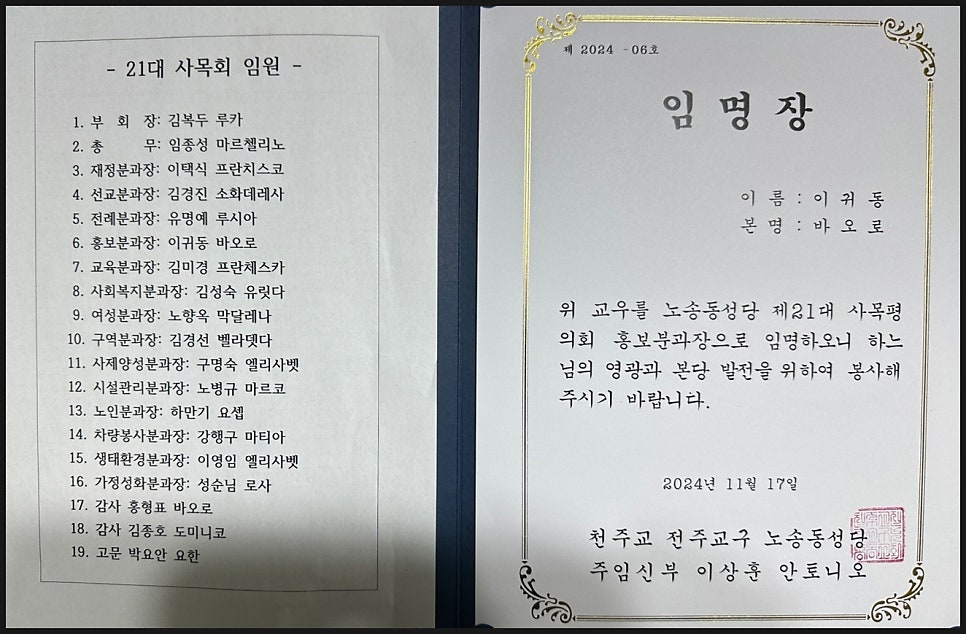 - 21대 사목회 임원 -
1. 부 회 장: 김복두 루카
2. 총 무: 임종성 마르첼리노
3. 재정분과장: 이택식 프란치스코
4. 선교분과장: 김경진 소화데레사
5. 전례분과장: 유명예 루시아
6. 홍보분과장: 이귀동 바오로
7. 교육분과장: 김미경 프란체스카
8. 사회복지분과장: 김성숙 유릿다
9. 여성분과장: 노향옥 막달레나
10. 구역분과장: 김경선 벨라뎃다
11. 사제양성분과장: 구명숙 엘리사벳
12. 시설관리분과장: 노병규 마르코
13. 노인분과장: 하만기 요셉
14. 차량봉사분과장: 강행구 마티아
15. 생태환경분과장: 이영임 엘리사벳
16. 가정성화분과장: 성순님 로사
17. 감사 홍형표 바오로
18. 감사 김종호 도미니코
19. 고문 박요안 요한
제 2024 -06호
임 명 장
이 름 : 이 귀 동
본 명 : 바 오 로
위 교우를 노송동성당 제21대 사목평
의회 홍보분과장으로 임명하오니 하느
님의 영광과 본당 발전을 위하여 봉사해
주시기 바랍니다.
2024년 11월 17일
천주교 전주교구 노송동성당
주임신부 이상훈 안토니오